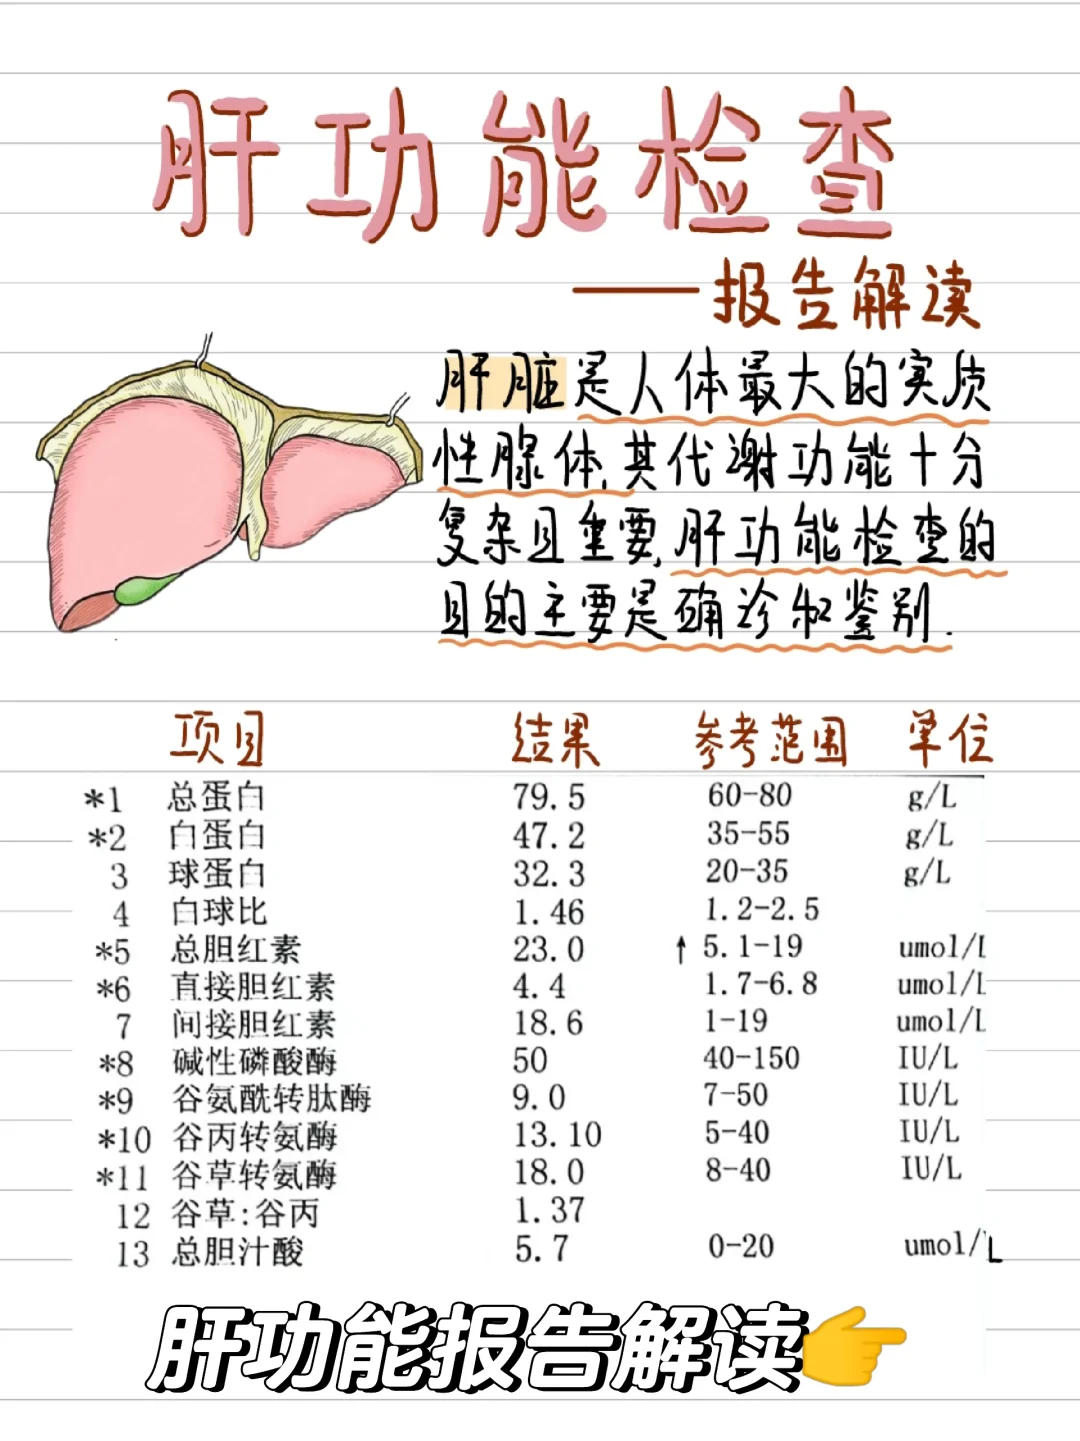 肝功能检查
——报告解读
肝脏是人体最大的实质
性腺体,其代谢功能十分
复杂且重要,肝功能检查的
目的主要是确诊和鉴别.
项目 结果 参考范围 单位
*1 总蛋白 79.5 60-80 g/L
*2 白蛋白 47.2 35-55 g/L
3 球蛋白 32.3 20-35 g/L
4 白球比 1.46 1.2-2.5
*5 总胆红素 23.0 ↑ 5.1-19 umol/L
*6 直接胆红素 4.4 1.7-6.8 umol/L
7 间接胆红素 18.6 1-19 umol/L
*8 碱性磷酸酶 50 40-150 IU/L
*9 谷氨酰转肽酶 9.0 7-50 IU/L
*10 谷丙转氨酶 13.10 5-40 IU/L
*11 谷草转氨酶 18.0 8-40 IU/L
12 谷草:谷丙 1.37
13 总胆汁酸 5.7 0-20 umol/L
肝功能报告解读👉